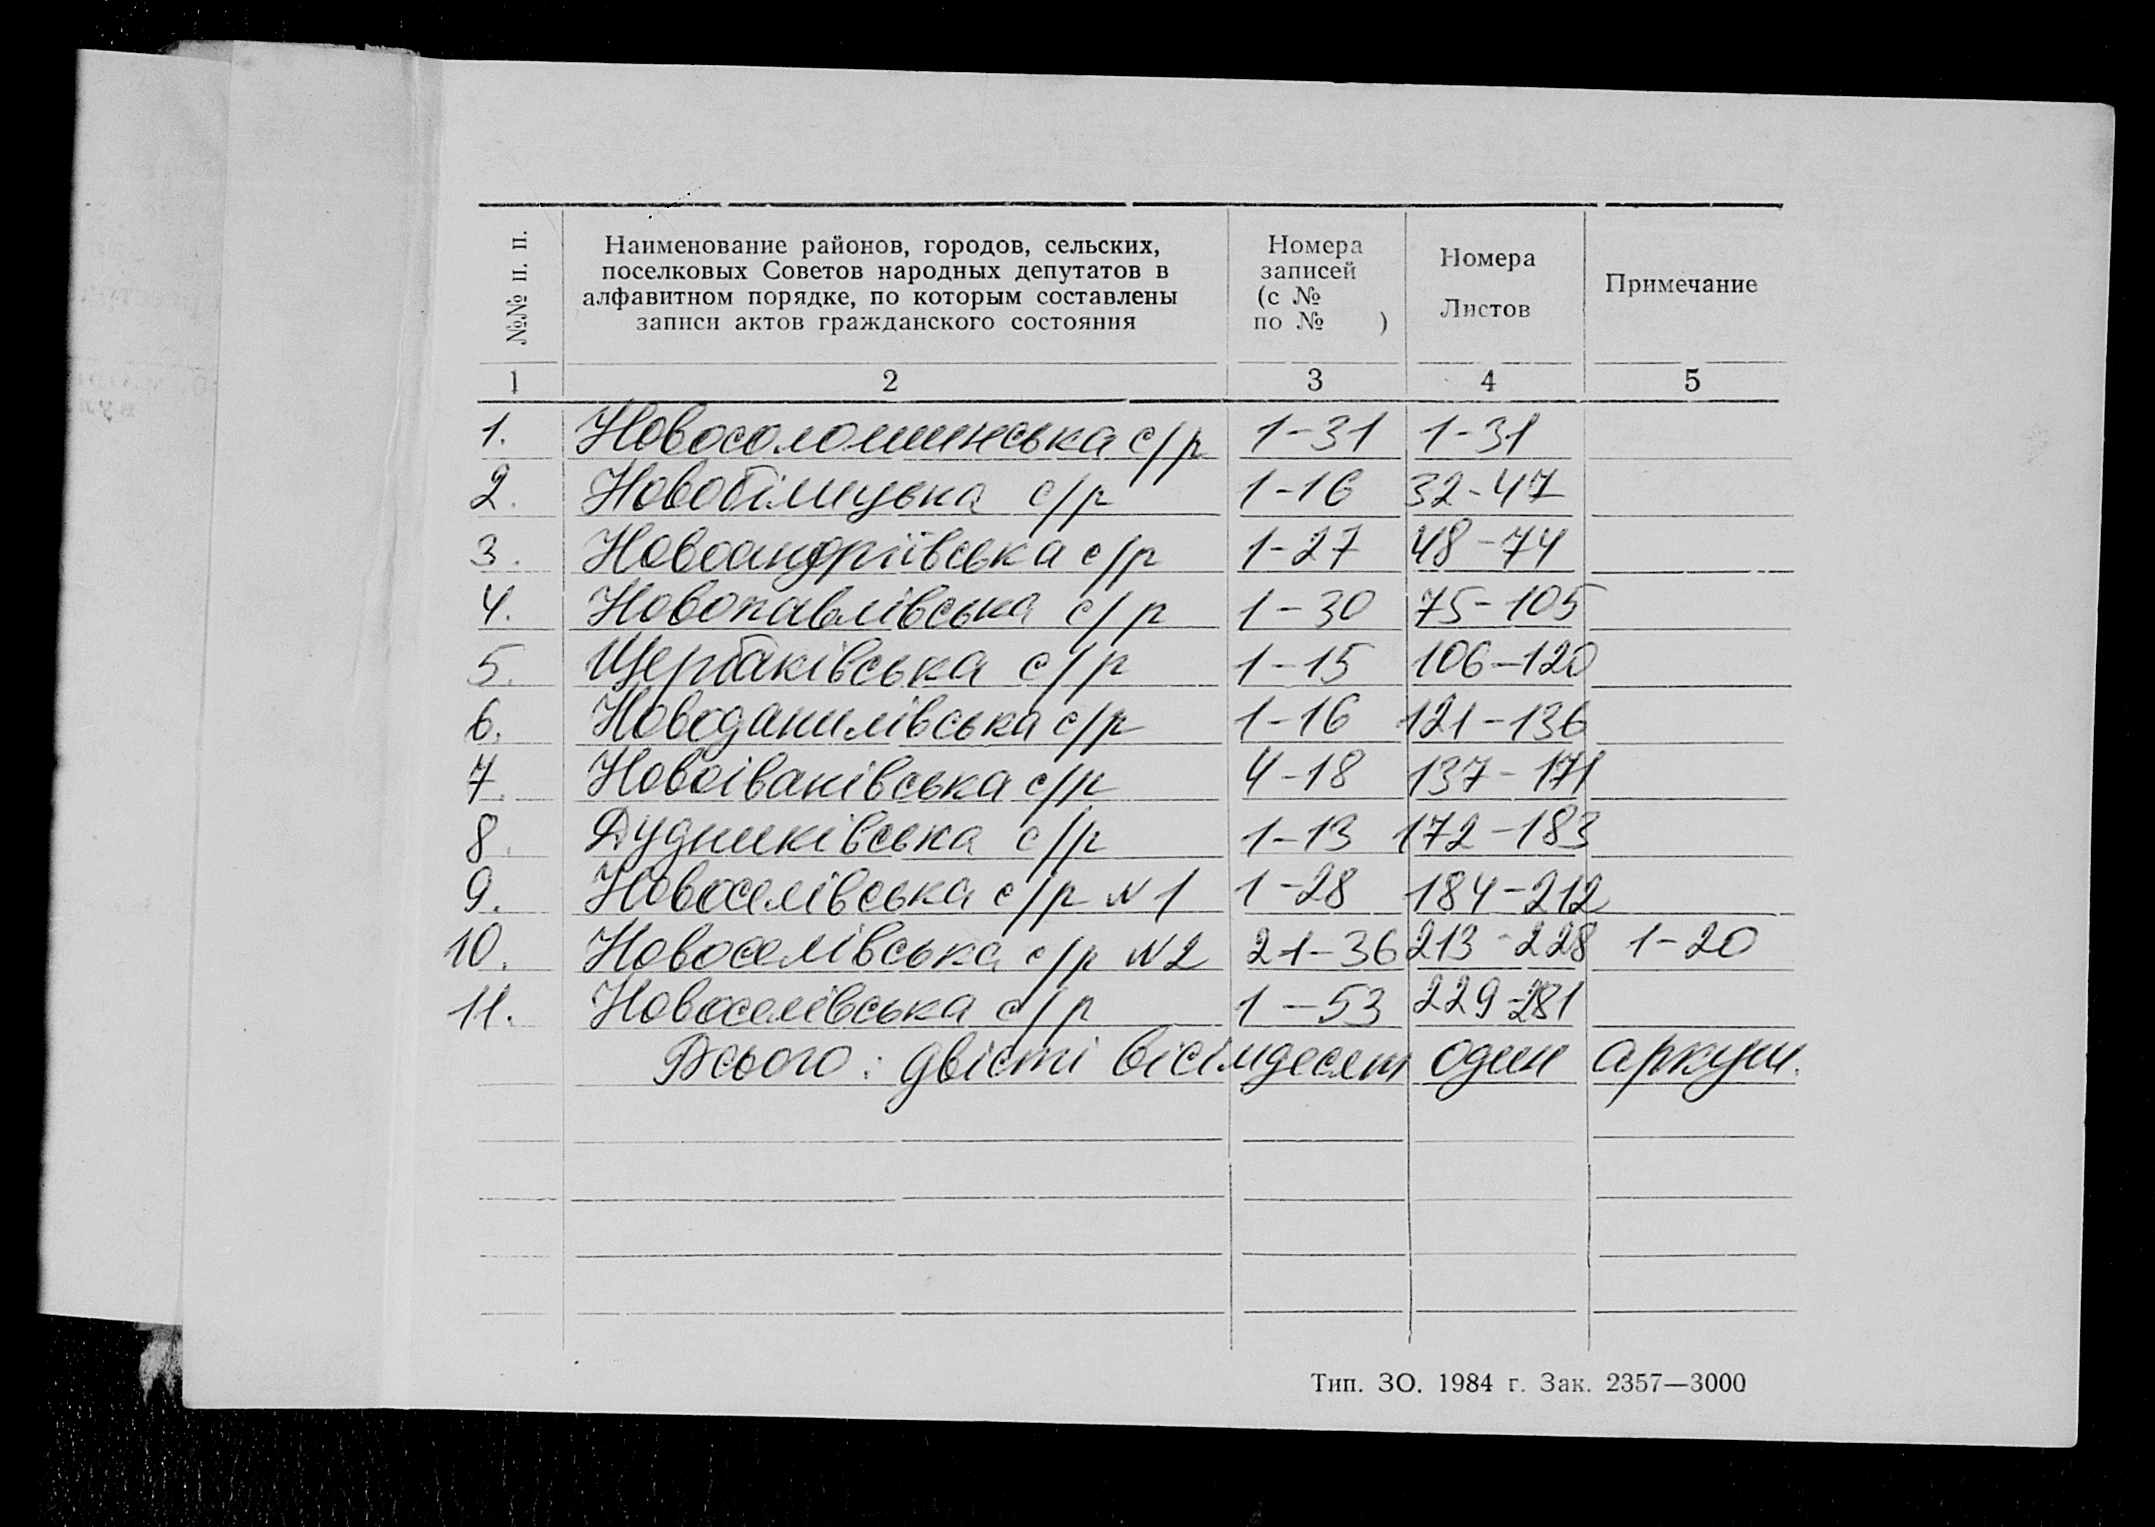 №№ п. п.
Наименование районов, городов, сельских,
поселковых Советов народных депутатов в
алфавитном порядке, по которым составлены
записи актов гражданского состояния
Номера
записей
(с №
по № )
Номера
Листов
Примечание
1 2 3 4 5
1. Новосолошинська с/р 1-31 1-31
2. Новобілицька с/р 1-16 32-47
3. Новоандріївська с/р 1-27 48-74
4. Новопавлівська с/р 1-30 75-105
5. Щербаківська с/р 1-15 106-120
6. Новоданилівська с/р 1-16 121-136
7. Новоіванівська с/р 4-18 137-171
8. Дудниківська с/р 1-13 172-183
9. Новоселівська с/р №1 1-28 184-212
10. Новоселівська с/р №2 21-36 213-228 1-20
11. Новоселівська с/р 1-53 229-281
Всього: двісті вісімдесят один аркуш.
Тип. ЗО. 1984 г. Зак. 2357—3000